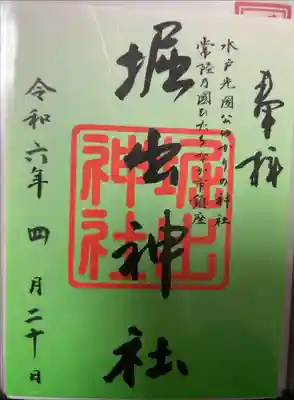 奉拝
水戸光圀公ゆかりの神社
常陸乃國ひたちなか市鎮座
堀出神社
堀出神社
令和六年 四月二十日